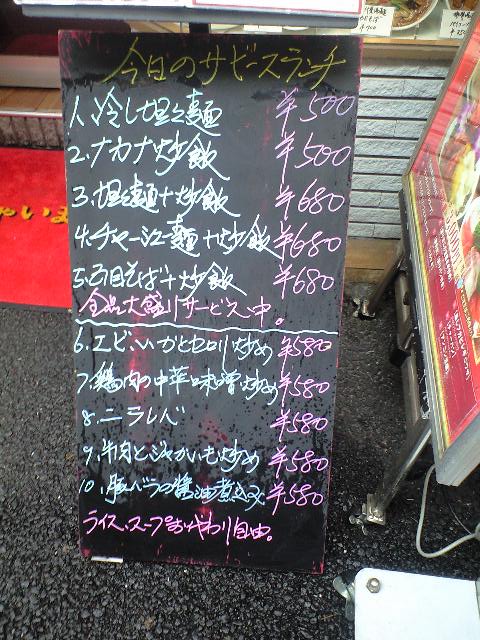 今日のサービスランチ
1.冷し担々麺 ¥500
2.ナカナ炒飯 ¥500
3.担々麺+炒飯 ¥680
4.チャーシュー麺+炒飯 ¥680
5.五目そば+炒飯 ¥680
全品大盛りサービス中。
6.エビ、いかとセロリ炒め ¥580
7.鶏肉の中華味噌炒め ¥580
8.ニラレバ ¥580
9.牛肉とジャがいも炒め ¥580
10.豚バラの醤油煮込み ¥580
ライス、スープおかわり自由。